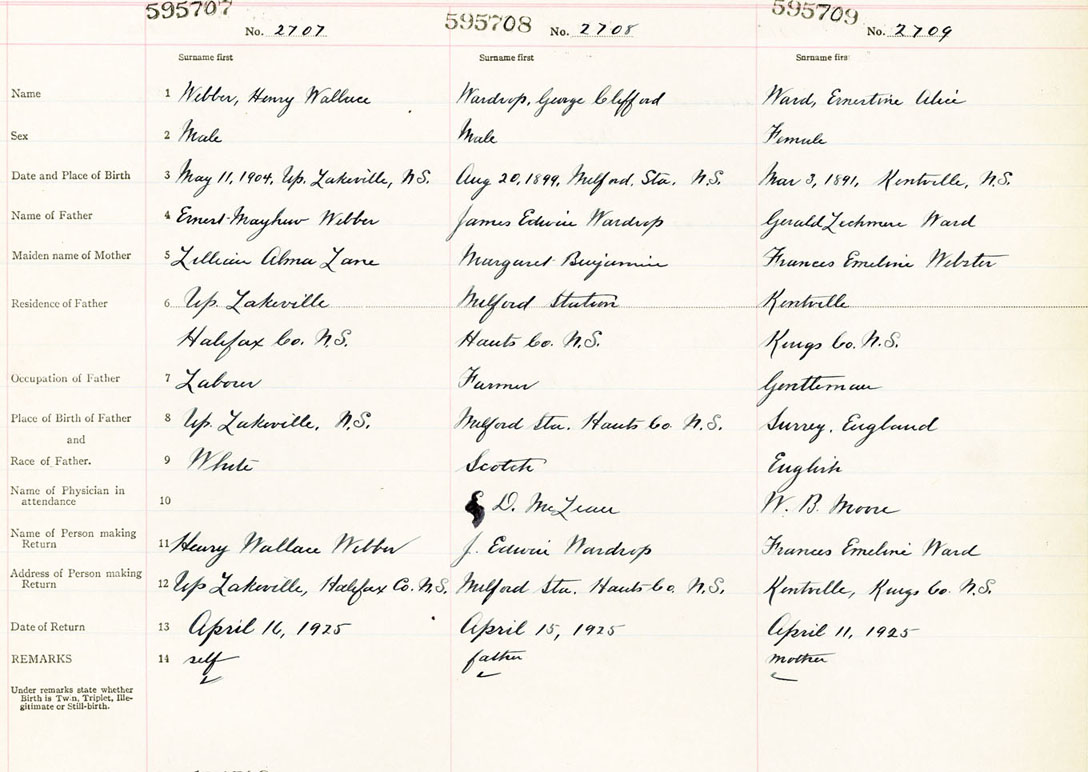 595707 595708 595709
No. 2707 No. 2708 No. 2709
Surname first Surname first Surname firs
Name 1 Webber, Henry Wallace Wardrop, George Clifford Ward, Ernestine Alice
Sex 2 Male Male Female
Date and Place of Birth 3 May 11, 1904, Up. Lakeville, N.S. Aug 20, 1899, Milford, Sta. N.S. Mar 3, 1891, Kentville, N.S.
Name of Father 4 Ernest Mayhew Webber James Edwin Wardrop Gerald Lechmere Ward
Maiden name of Mother 5 Lillian Alma Lane Margaret Benjamin Frances Emeline Webster
Residence of Father 6 Up. Lakeville Milford Station Kentville
Halifax Co. N.S. Hants Co. N.S. Kings Co. N.S.
Occupation of Father 7 Labour Farmer Gentleman
Place of Birth of Father 8 Up. Lakeville, N.S. Milford Sta. Hants Co N.S. Surrey, England
and
Race of Father. 9 White Scotch English
Name of Physician in
attendance 10 D. McLean W. B. Moore
Name of Person making
Return 11 Henry Wallace Webber J. Edwin Wardrop Frances Emeline Ward
Address of Person making
Return 12 Up Lakeville, Halifax Co. N.S. Milford Sta. Hants Co. N.S. Kentville, Kings Co. N.S.
Date of Return 13 April 16, 1925 April 15, 1925 April 11, 1925
REMARKS 14 self father mother
Under remarks state whether
Birth is Twin, Triplet, Ille-
gitimate or Still-birth.